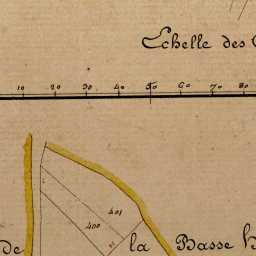 Echelle des
10 20 30 40 50 60 70 80
401
400
de la Basse